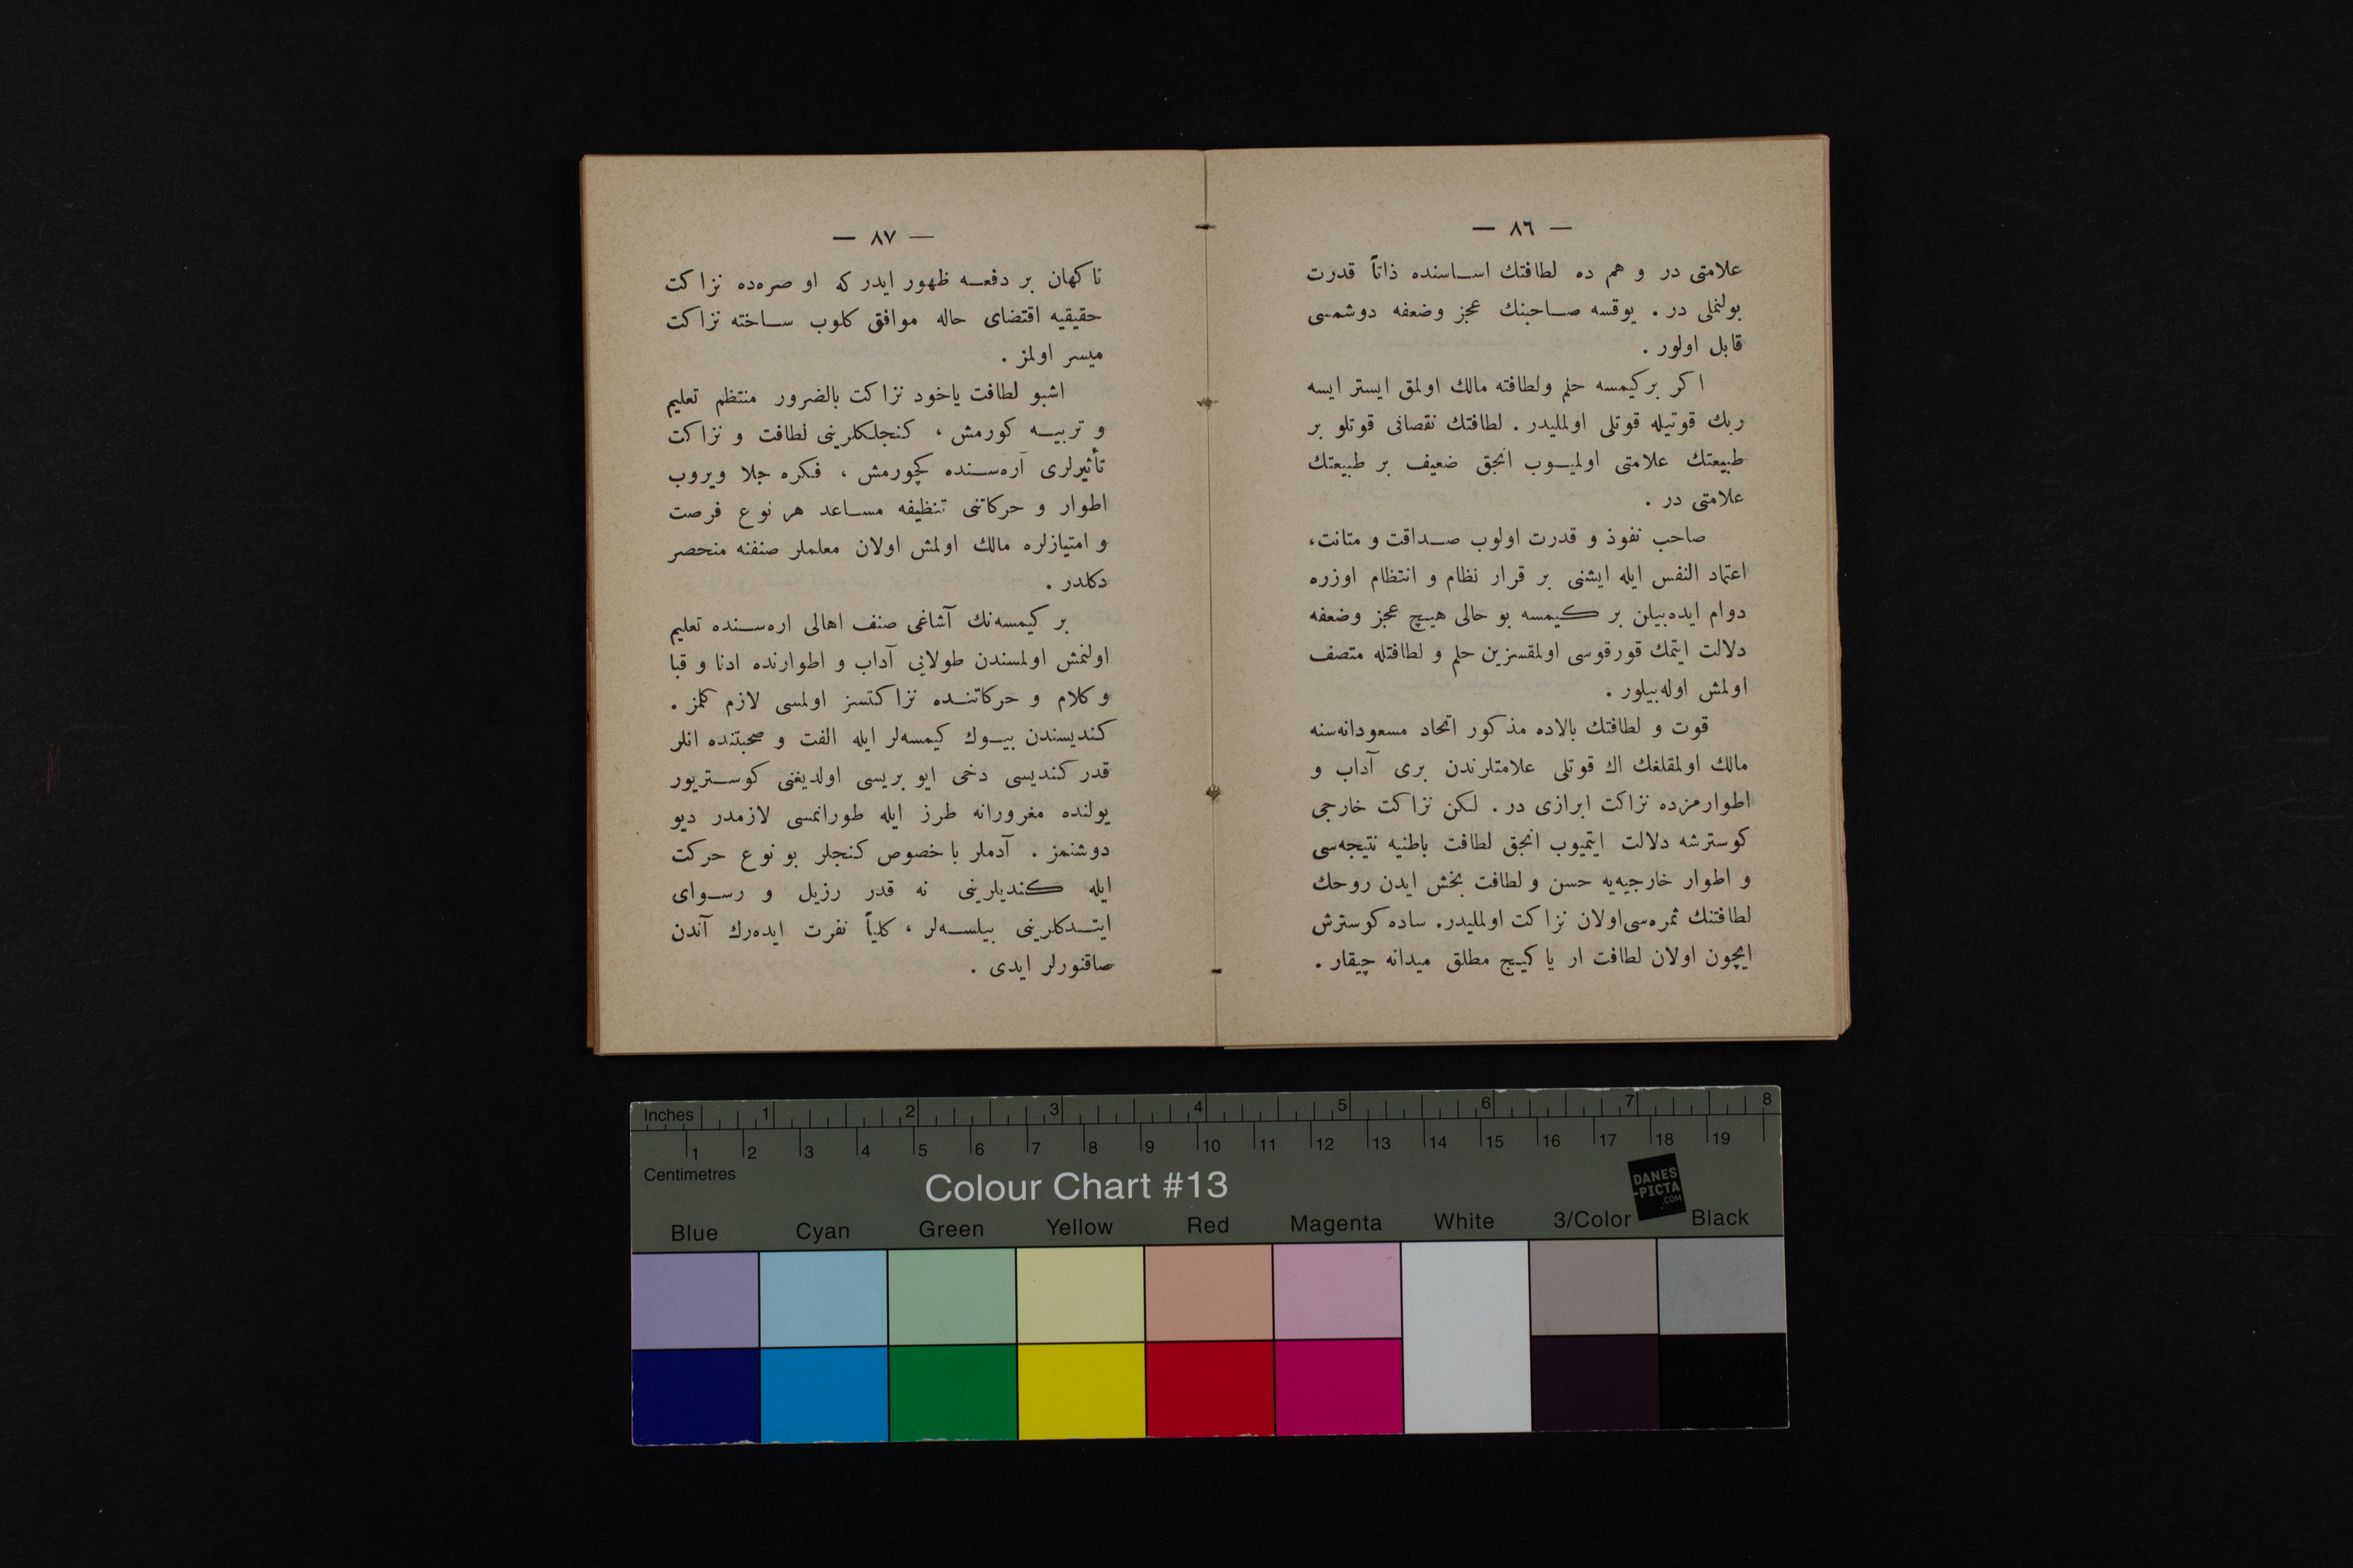 — ٨٦ —
علامتی در و هم ده لطافتك اساسنده ذاتاً قدرت
بولنملی در . یوقسه صاحبنك عجز وضعفه دوشمسی
قابل اولور .
اكر بركیمسه حلم ولطافته مالك اولمق ایستر ایسه
ربك قوتیله قوتلی اولملیدر . لطافتك نقصانی قوتلو بر
طبیعتك علامتی اولمیوب انجق ضعیف بر طبیعتك
علامتی در .
صاحب نفوذ و قدرت اولوب صداقت و متانت،
اعتماد النفس ایله ایشنی بر قرار نظام و انتظام اوزره
دوام ایده‌بیلن بر كیمسه بو حالی هیچ عجز وضعفه
دلالت ایتمك قورقوسی اولمقسزین حلم و لطافتله متصف
اولمش اوله‌بیلور .
قوت و لطافتك بالاده مذكور اتحاد مسعودانه‌سنه
مالك اولمقلغك اك قوتلی علامتلرندن بری آداب و
اطوارمزده نزاكت ابرازی در . لكن نزاكت خارجی
كوسترشه دلالت ایتمیوب انجق لطافت باطنیه نتیجه‌سی
و اطوار خارجیه‌یه حسن و لطافت بخش ایدن روحك
لطافتنك ثمره‌سی اولان نزاكت اولملیدر. ساده كوسترش
ایچون اولان لطافت ار یا كیج مطلق میدانه چیقار .
— ٨٧ —
ناكهان بر دفعه ظهور ایدر كه او صره‌ده نزاكت
حقیقیه اقتضای حاله موافق كلوب ساخته نزاكت
میسر اولمز .
اشبو لطافت یاخود نزاكت بالضرور منتظم تعلیم
و تربیه كورمش ، كنجلكلرینی لطافت و نزاكت
تأثیرلری آره‌سنده كچورمش ، فكره جلا ویروب
اطوار و حركاتنی تنظیفه مساعد هر نوع فرصت
و امتیازلره مالك اولمش اولان معلملر صنفنه منحصر
دكلدر .
بر كیمسه‌نك آشاغی صنف اهالی اره‌سنده تعلیم
اولنمش اولمسندن طولایی آداب و اطوارنده ادنا و قبا
و كلام و حركاتنده نزاكتسز اولمسی لازم كلمز .
كندیسندن بیوك كیمسه‌لر ایله الفت و صحبتنده انلر
قدر كندیسی دخی ایو بریسی اولدیغنی كوستریور
یولنده مغرورانه طرز ایله طورانمسی لازمدر دیو
دوشنمز . آدملر باخصوص كنجلر بو نوع حركت
ایله كندیلرینی نه قدر رزیل و رسوای
ایتدكلرینی بیلسه‌لر ، كلیاً نفرت ایده‌رك آندن
صاقنورلر ایدی .
Inches 1 2 3 4 5 6 7 8
1 2 3 4 5 6 7 8 9 10 11 12 13 14 15 16 17 18 19
Centimetres
Colour Chart #13
DANES
-PICTA
.COM
Blue Cyan Green Yellow Red Magenta White 3/Color Black